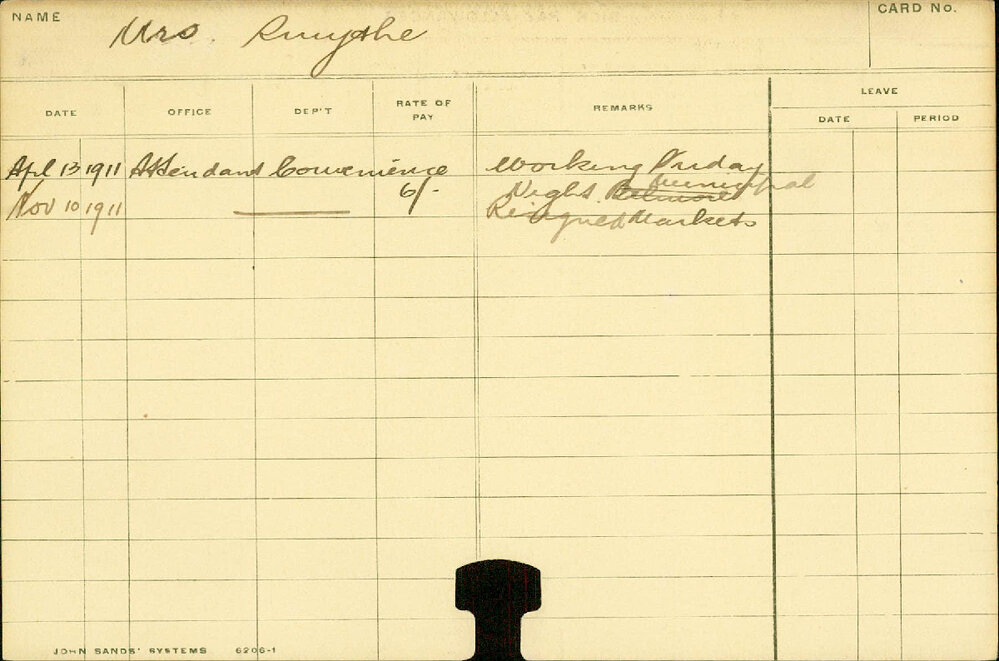 NAME Mrs. Smythe CARD No.
DATE OFFICE DEP'T RATE OF PAY REMARKS LEAVE
DATE PERIOD
Apl 13 1911 Attendant Convenience 6/- Working Friday
Night. Belmore Municipal
Nov 10 1911 Resigned Markets
JOHN SANDS' SYSTEMS 6206-1